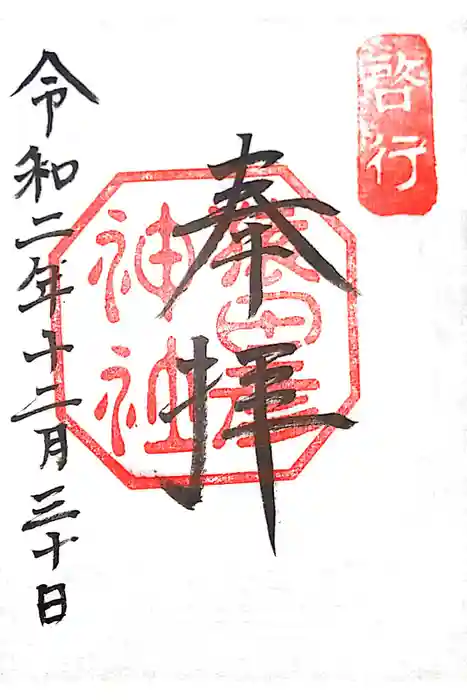 啓行
奉拝
神社
令和二年十二月三十日